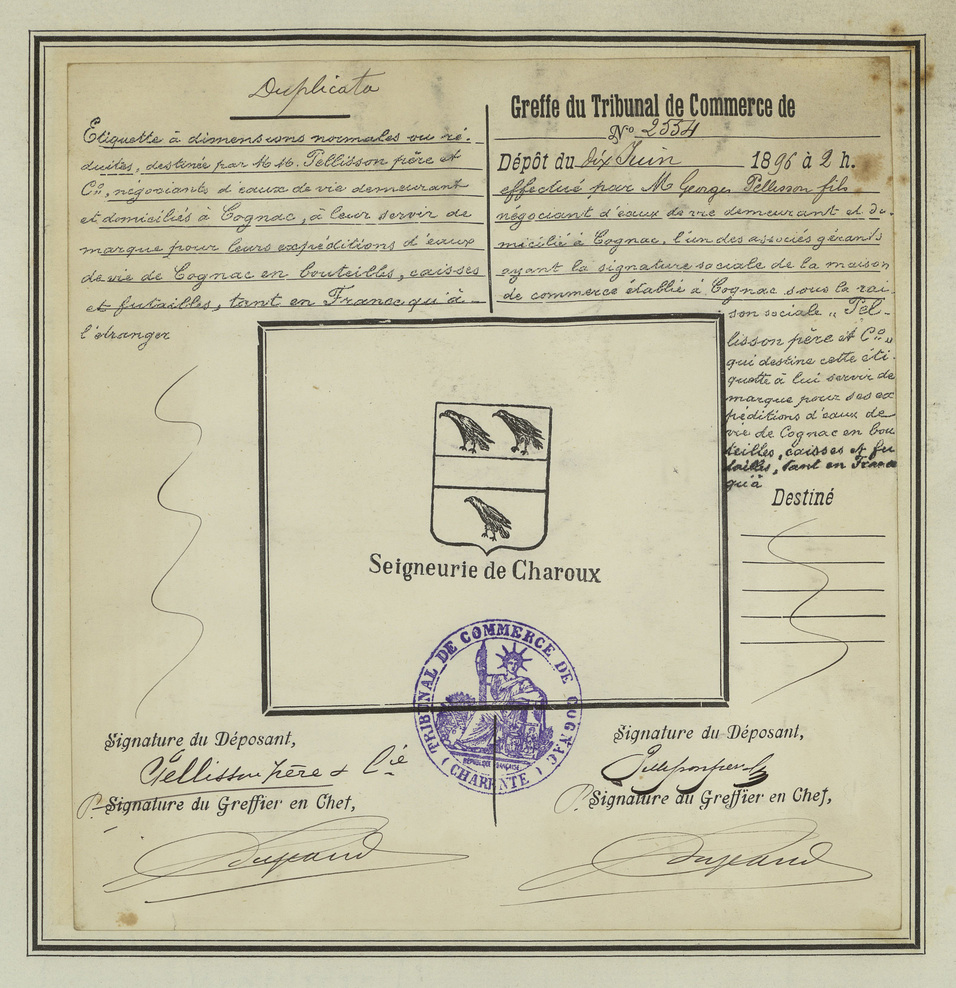 Duplicata
Etiquette à dimensions normales ou ré-
duites, destinée par M.M. Pellisson père et
Cie, négociants d'eaux de vie demeurant
et domiciliés à Cognac, à leur servir de
marque pour leurs expéditions d'eaux
de vie de Cognac en bouteilles, caisses
et futailles, tant en France qu'à
l'étranger
Greffe du Tribunal de Commerce de
No 2554
Dépôt du dix Juin 1896 à 2 h.
effectué par M Georges Pellisson fils
négociant d'eaux de vie demeurant et do-
micilié à Cognac, l'un des associés gérants
ayant la signature sociale de la maison
de commerce établie à Cognac sous la rai
son sociale „ Pel-
lisson père et Cie „
qui destine cette éti-
quette à lui servir de
marque pour ses ex
péditions d'eaux de
vie de Cognac en bou
teilles, caisses et fu
tailles, tant en France
qu'à
Destiné
Seigneurie de Charoux
TRIBUNAL DE COMMERCE DE COGNAC
RÉPUBLIQUE FRANÇAISE
( CHARENTE )
Signature du Déposant,
Pellisson père & Cie
Pr Signature du Greffier en Chef,
Signature du Déposant,
Pr Signature du Greffier en Chef,